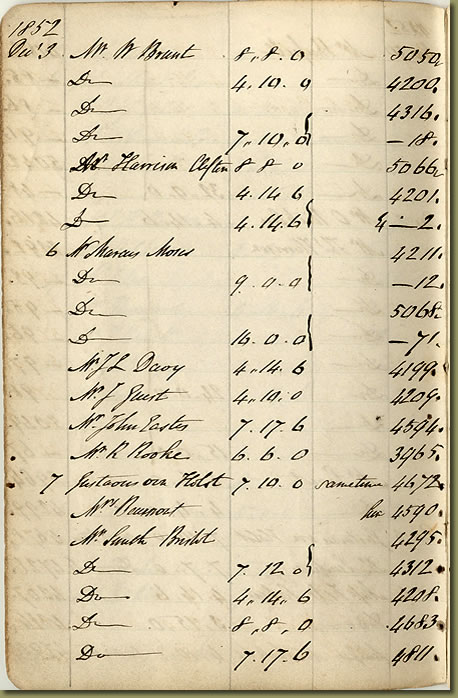 1852
Decr 3 Mr W Brant 8,, 8. 0 5050.
Do 4. 10. 0 4200.
Do 4316.
Do 7,, 10,, 0 – 18.
Mr Harrison Clifton 8 8 0 5066.
Do 4. 14 6 4201.
Do 4. 14. 6 – 2.
6 Mr Marcus Moses 4211.
Do 9. 0. 0 – 12.
Do 5068.
Do 16. 0. 0 – 71.
Mr J L Davy 4,, 14. 6 4199.
Mr J Guest 4,, 10. 0 4209.
Mr John Easter 7. 17. 6 4594.
Mr R Rooke 6. 6. 0 3965.
7 Gustavus von Holst 7. 10. 0 sametune 4672.
Mrs 4590.
Mr Smith Bristol 4295.
Do 7. 12. 0 4312.
Do 4,, 14,, 6 4208.
Do 8,, 8,, 0 4683.
Do 7. 17. 6 4811.